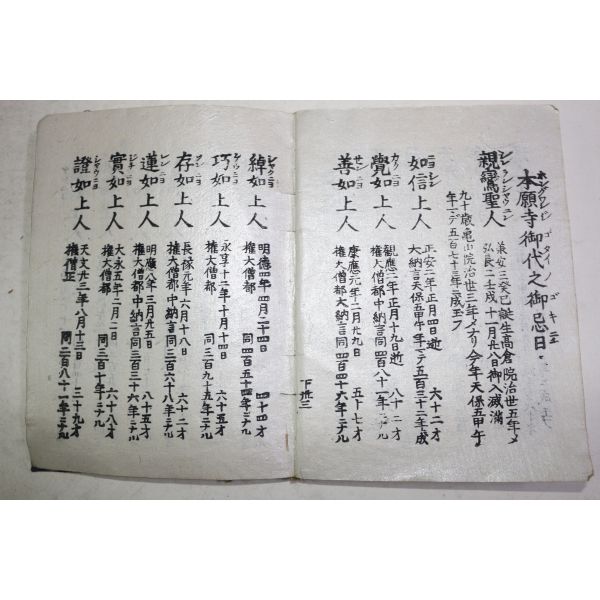 本願寺御代之御忌日
ホングワンジゴダイノゴキニチ
親鸞聖人
シンランシヤウニン
承安三癸巳誕生高倉院治世五年メ
弘長二壬戌十一月廿八日御入滅満
九十歳亀山院治世三年メナリ今年天保五甲午
年マデ五百七十三年ニ成玉フ
如信上人
ニヨシン
正安二年正月四日逝 六十二才
大納言天保五甲午年マデ五百三十二年成
覺如上人
カクニヨ
觀應二年正月十九日逝 八十二才
權大僧都中納言同四百八十一年ニナル
善如上人
ゼンニヨ
康應元年二月廿九日 五十七才
權大僧都大納言同四百四十六年ニナル
綽如上人
シヤクニヨ
明德四年四月二十四日 四十四才
權大僧都 同四百五十四年ニナル
巧如上人
ゲウニヨ
永享十二年十月十四日 六十五才
權大僧都 同三百九十五年ニナル
存如上人
ゾンニヨ
長祿元年六月十八日 六十二才
權大僧都中納言同三百六十八年ニナル
蓮如上人
レンニヨ
明應八年三月廿五日 八十五才
權大僧都中納言同三百三十六年ニナル
實如上人
ジチニヨ
大永五年二月二日 六十八才
同三百十年ニナル
證如上人
シヤウニヨ
天文廿三年八月十三日 三十九才
權僧正 同二百八十一年ニナル